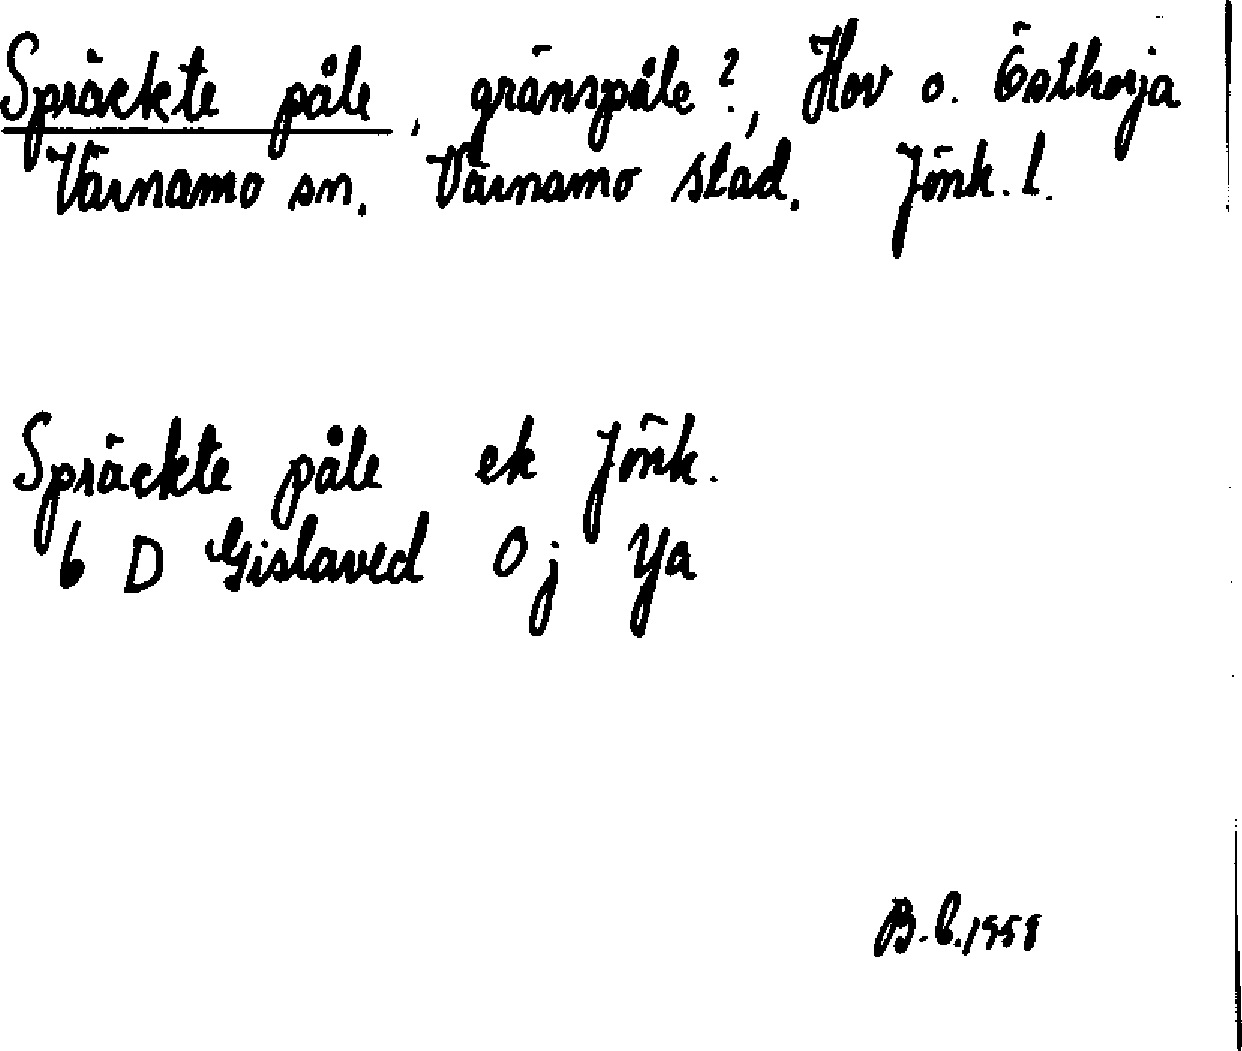 Spräckte påle, gränspåle?, Hov o. Östhorja
Värnamo sn. Värnamo stad. Jönk. l.
Spräckte påle ek Jönk.
6 D Gislaved 0 j Ya
B. C. 1958